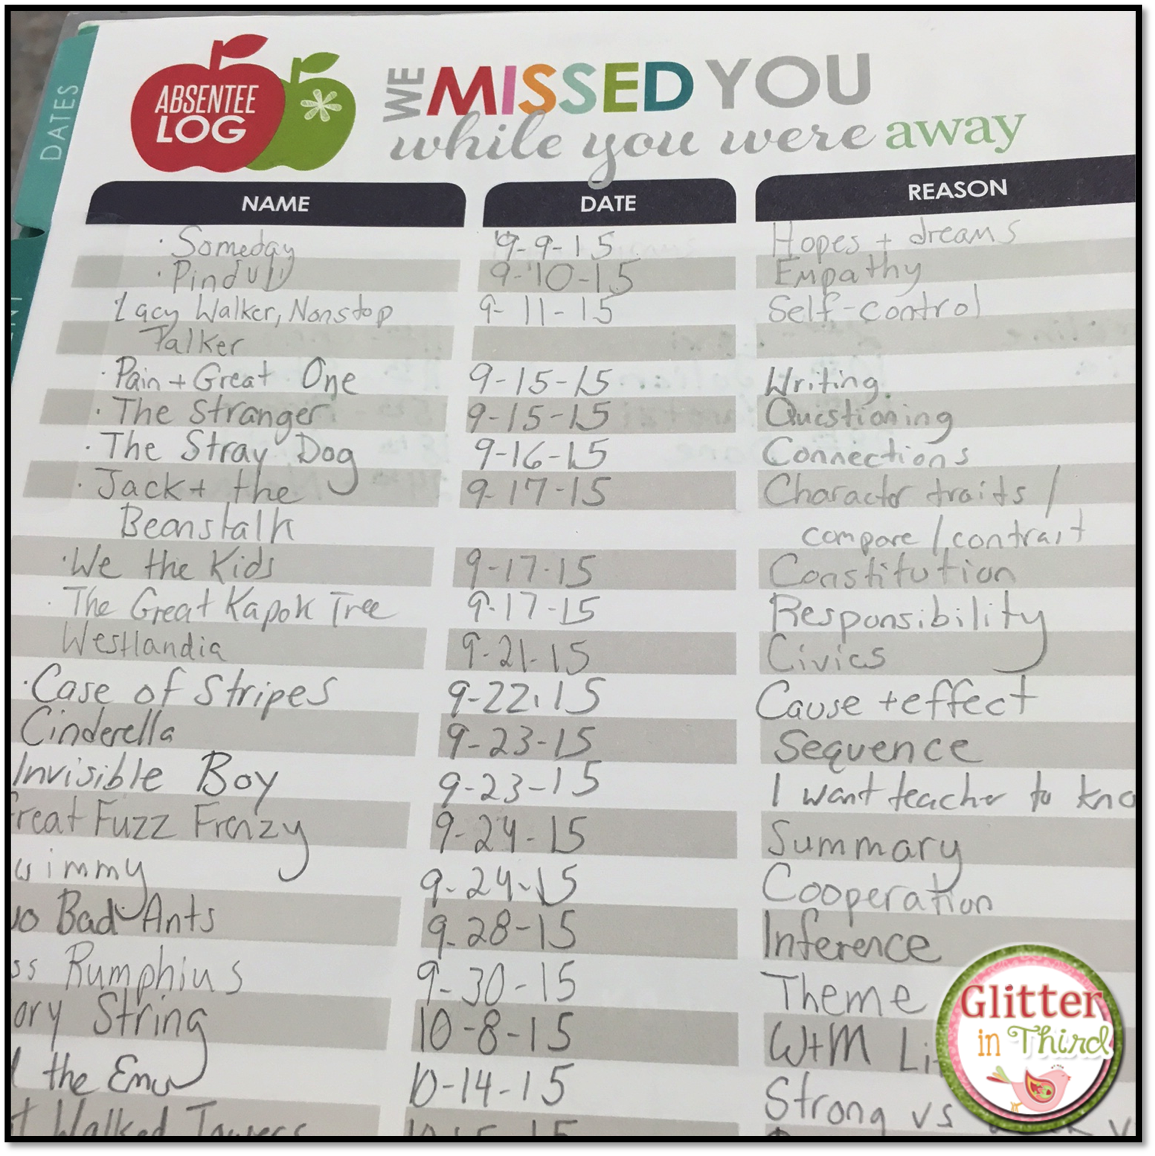 DATES
ABSENTEE
LOG
WE MISSED YOU
while you were away
NAME DATE REASON
· Someday 9-9-15 Hopes + dreams
· Pinduli 9-10-15 Empathy
Lacy Walker, Nonstop 9-11-15 Self-control
Talker
· Pain + Great One 9-15-15 Writing
· The Stranger 9-15-15 Questioning
· The Stray Dog 9-16-15 Connections
· Jack + the 9-17-15 Character traits /
Beanstalk compare / contrast
· We the Kids 9-17-15 Constitution
· The Great Kapok Tree 9-17-15 Responsibility
Westlandia 9-21-15 Civics
· Case of Stripes 9-22-15 Cause + effect
Cinderella 9-23-15 Sequence
Invisible Boy 9-23-15 I want teacher to kno
reat Fuzz Frenzy 9-24-15 Summary
wimmy 9-24-15 Cooperation
wo Bad Ants 9-28-15 Inference
ss Rumphius 9-30-15 Theme
ory String 10-8-15 W+M Li
the Emu 10-14-15 Strong vs
t Walked Towers
Glitter
in Third